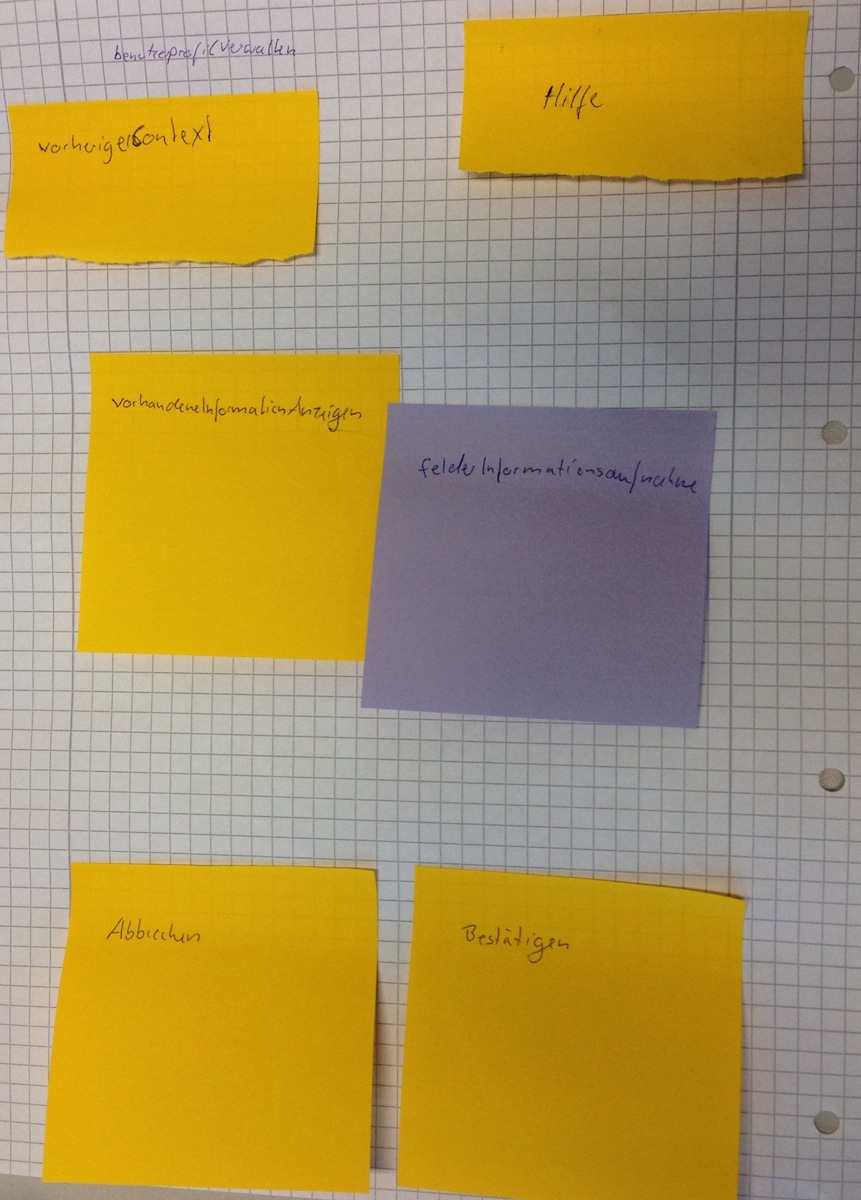 benutzerprofilVerwalten
vorherigerContext
Hilfe
vorhandeneInformationAnzeigen
felderInformationsaufnahme
Abbrechen
Bestätigen